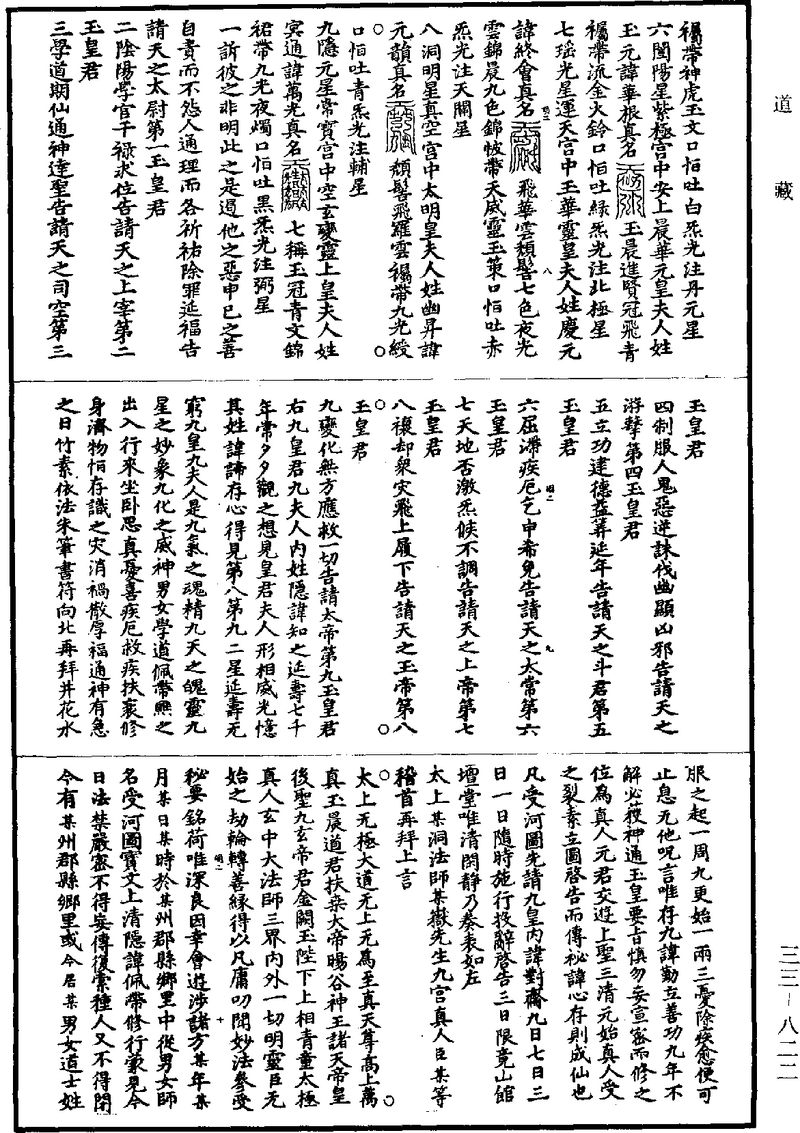 道藏
襡帶神虎玉文口恒吐白炁光注丹元星
六闓陽星紫極宮中安上晨華元皇夫人姓
玉元諱華根真名玉晨進賢冠飛青
襡帶流金火鈴口恒吐綠炁光注北極星
七瑶光星運天宮中王華靈皇夫人姓慶元
諱終會真名飛華雲頹髻七色夜光
雲錦晨九色錦帔帶天威靈玉策口恒吐赤
炁光注天關星
八洞明星真空宮中太明皇夫人姓幽昇諱
元韻真名頹髻飛羅雲襡帶九光綬
口恒吐青炁光注輔星
九隱元星常寶宮中空玄變靈上皇夫人姓
冥通諱萬光真名七稱玉冠青文錦
裙帶九光夜燭口恒吐黑炁光注弼星
一訴彼之非明此之是遏他之惡申已之善
自責而不怨人通理而各祈祐除罪延福告
請天之太尉第一玉皇君
二陰陽學官干祿求位告請天之上宰第二
玉皇君
三學道期仙通神達聖告請天之司空第三
玉皇君
四制服人鬼惡逆誅伐幽顯凶邪告請天之
游擊第四玉皇君
五立功建德益筭延年告請天之斗君第五
玉皇君
六屈滯疾厄乞申希免告請天之太常第六
玉皇君
七天地否激炁候不調告請天之上帝第七
玉皇君
八禳却衆灾飛上履下告請天之玉帝第八
玉皇君
九變化無方應救一切告請太帝第九玉皇君
右九皇君九夫人內姓隱諱知之延壽七千
年常夕夕觀之想見皇君夫人形相威光憶
其姓諱諦存心得見第八第九二星延壽无
窮九皇九夫人是九氣之魂精九天之魄靈九
星之妙象九化之威神男女學道佩帶無之
出入行來坐卧思真憂喜疾厄救疾扶衰修
身濟物恒存識之灾消禍散厚福通神有急
之日竹素依法朱筆書符向北再拜并花水
服之起一周九更始一兩三憂除疾愈便可
止息无他呪言唯存九諱勤立善功九年不
解必獲神通玉皇要旨慎勿妄宣密而修之
位為真人元君交遊上聖三清元始真人受
之裂素立圖啓告而傳秘諱心存則成仙也
凡受河圖先請九皇內諱對齋九日七日三
日一日隨時施行投辭啓告三日限竟山館
壇堂唯清閑靜乃奏表如左
太上某洞法師某嶽先生九宮真人臣某等
稽首再拜上言
太上无極大道无上无為至真天尊高上萬
真玉晨道君扶桒大帝暘谷神王諸天帝皇
後聖九玄帝君金闕玉陛下上相青童太極
真人玄中大法師三界內外一切明靈臣元
始之劫輪轉善緣得以凡庸叨聞妙法參受
秘要銘荷唯深良因幸會遊涉諸方某年某
月某日某時於某州郡縣鄉里中從男女師
名受河圖寶文上清隱諱佩帶修行蒙見今
日法禁嚴密不得妄傳復索種人又不得閉
今有某州郡縣鄉里或今居某男女道士姓
三三—八二二